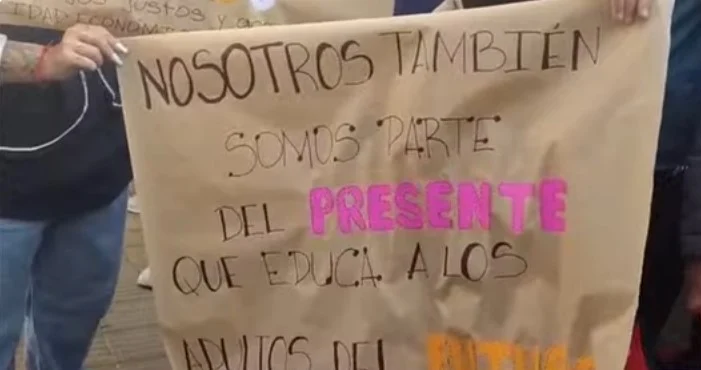 justos y
IDAD ECONÓM
NOSOTROS TAMBIÉN
SOMOS PARTE
DEL PRESENTE
QUE EDUCA A LOS
ADULTOS DEL